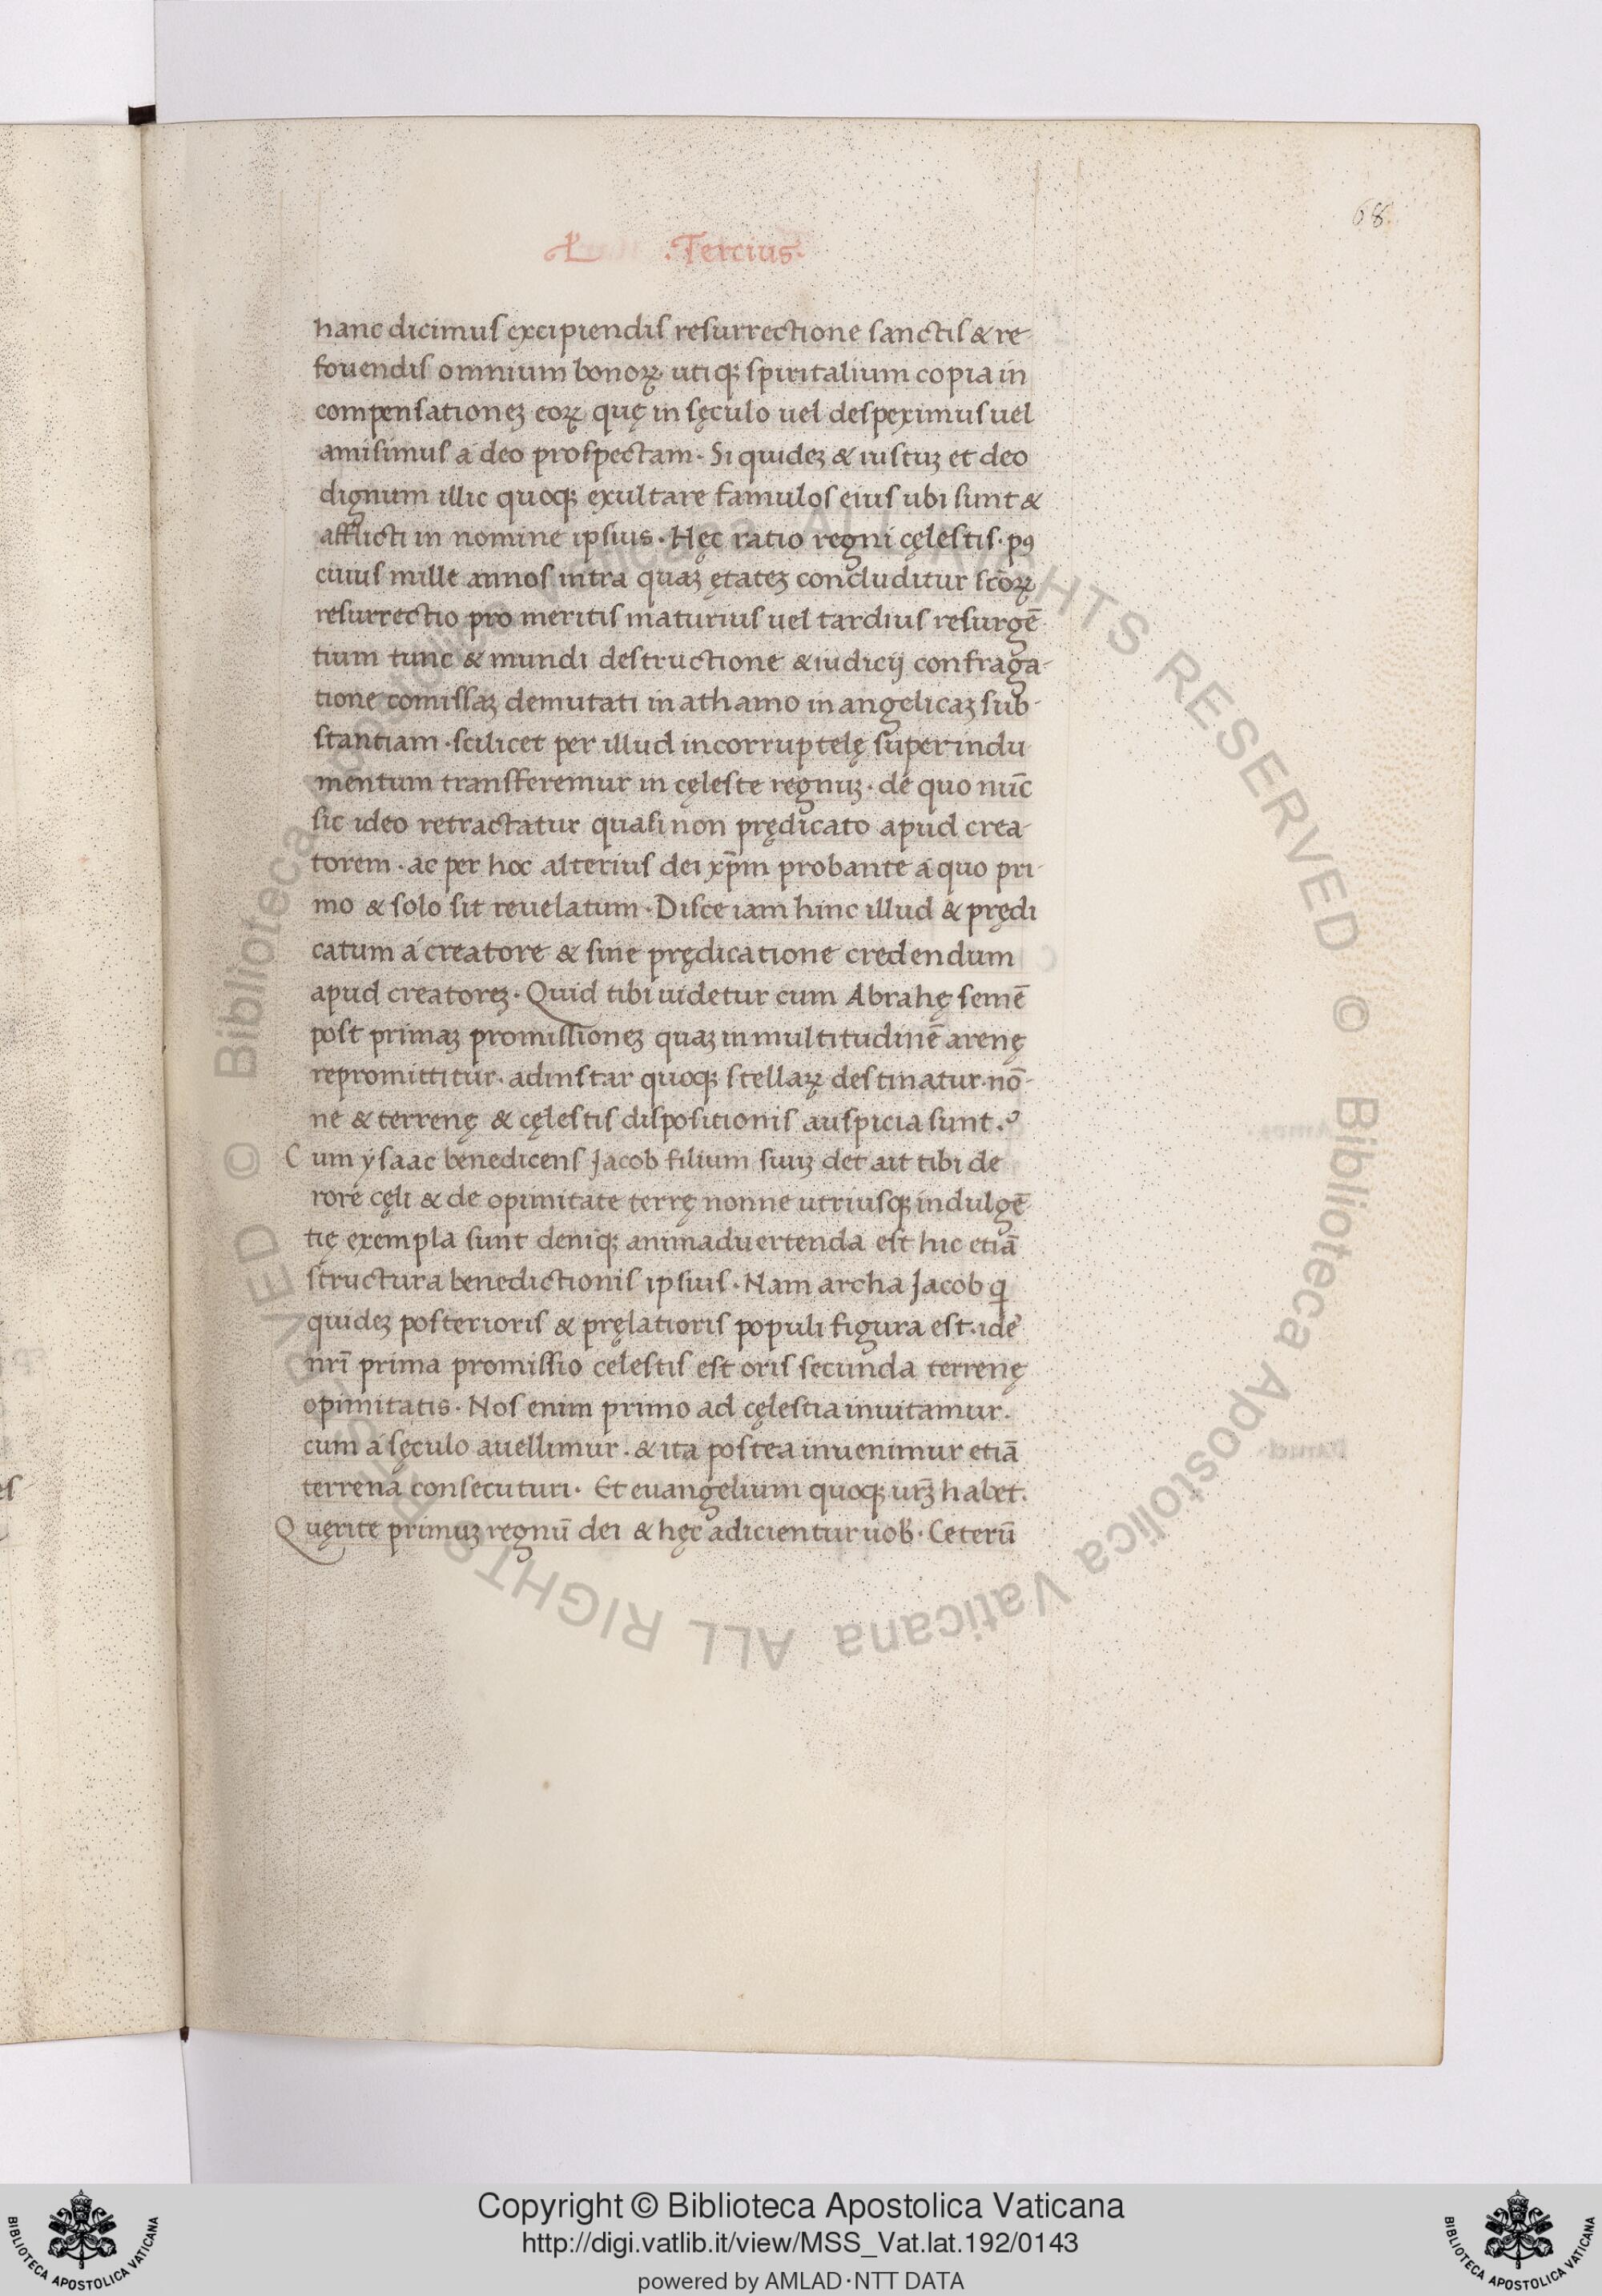 68
.Tercius.
hanc dicimus excipiendis resurrectione sanctis & re-
fouendis omnium bonoꝝ utiqꝫ spiritalium copia in
compensationeꝫ eoꝝ quę in sęculo uel despeximus uel
amisimus á deo prospectam. Si quideꝫ & iustuꝫ et deo
dignum illic quoqꝫ exultare famulos eius ubi sunt &
afflicti in nomine ipsius. Hęc ratio regni cęlestis. pꝰ
cuius mille annos intra quaꝫ ętateꝫ concluditur scōꝝ
resurrectio pro meritis maturius uel tardius resurgē-
tium tunc & mundi destructione & iudicij confraga-
tione comissaꝫ demutati in athamo in angelicaꝫ sub-
stantiam. scilicet per illud incorruptelę superindu
mentum transferemur in cęleste regnuꝫ. de quo nūc
sic ideo retractatur quasi non prędicato apud crea-
torem. ac per hoc alterius dei xp̄m probante á quo pri-
mo & solo sit reuelatum. Disce iam hinc illud & prędi
catum á creatore & sine prędicatione credendum
apud creatoreꝫ. Quid tibi uidetur cum Abrahę semē
post primaꝫ promissioneꝫ quaꝫ in multitudinē arenę
repromittitur. adinstar quoqꝫ stellaꝝ destinatur. nō-
ne & terrenę & cęlestis dispositionis auspicia sunt.?
Cum ysaac benedicens Jacob filium suuꝫ det ait tibi de
rore cęli & de opimitate terrę nonne utriusqꝫ indulgē-
tię exempla sunt deniqꝫ animaduertenda est hic etiā
structura benedictionis ipsius. Nam archa Jacob qi
quideꝫ posterioris & pręlatioris populi figura est. idē
nrī prima promissio celestis est oris secunda terrenę
opimitatis. Nos enim primo ad cęlestia inuitamur.
cum á sęculo auellimur. & ita postea inuenimur etiā
terrena consecuturi. Et euangelium quoqꝫ urꝫ habet.
Quęrite primuꝫ regnū dei & hęc adicientur uob. Ceterū
Copyright © Biblioteca Apostolica Vaticana
http://digi.vatlib.it/view/MSS_Vat.lat.192/0143
powered by AMLAD·NTT DATA
BIBLIOTECA APOSTOLICA VATICANA
BIBLIOTECA APOSTOLICA VATICANA
© Biblioteca Apostolica Vaticana ALL RIGHTS RESERVED © Biblioteca Apostolica Vaticana ALL RIGHTS RESERVED